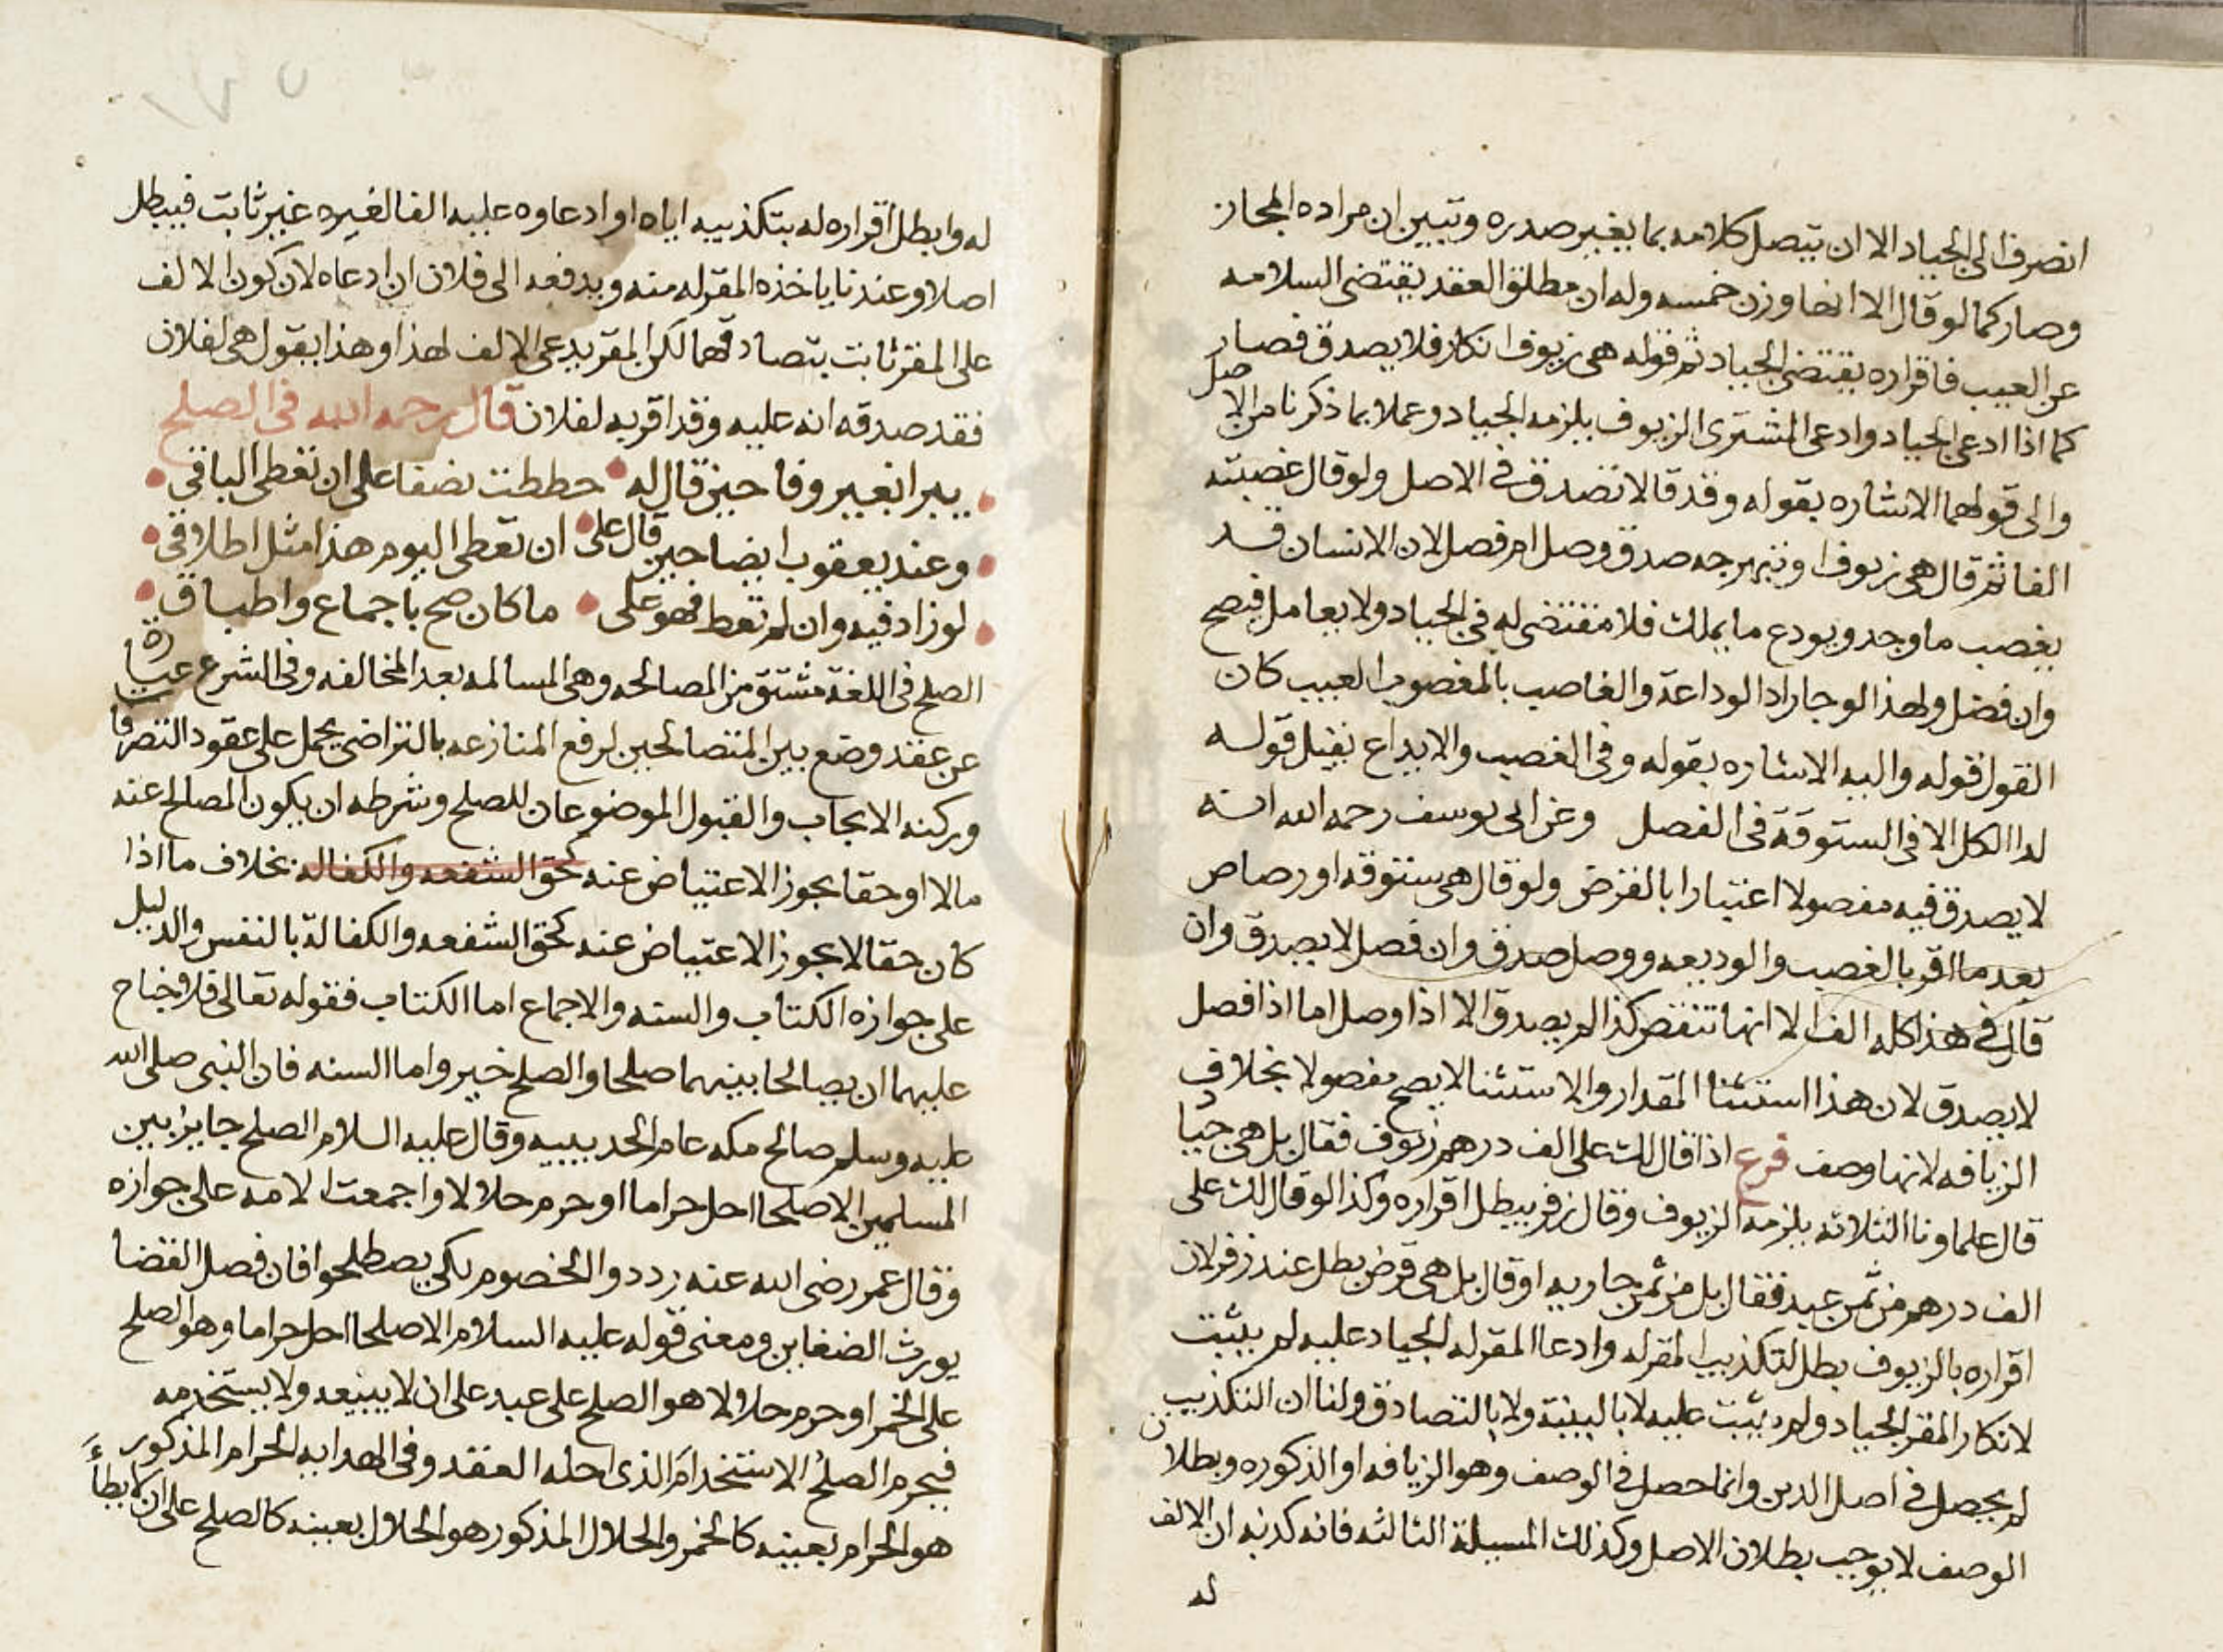 انصرف الى الجياد الا ان يتصل كلامه بما يغير صدره وتبين ان مراده المجاز
وصار كما لو قال الا انها وزن خمسه وله ان مطلق العقد يقتضى السلامه
عن العيب فاقراره يقتضى الجياد ثم قوله هى زيوف انكار فلا يصدق فصار
كما اذا ادعى الجياد وادعى المشترى الزيوف يلزمه الجياد وعملا بما ذكرنا من الاصل
والى قولهما الاشاره بقوله وقد قالا تصدق فى الاصل ولو قال غصبته
الفا ثم قال هى زيوف او نبهرجه صدق وصل ام فصل لان الانسان قد
يغصب ما وجد ويودع ما يملك فلا مقتضى له فى الجياد ولا يعامل فيصح
وان فصل ولهذا لو جا راد الوداعة والغاصب بالمغصوب العيب كان
القول قوله واليه الاشاره بقوله وفى الغصب والايداع يقبل قوله
لدا الكل الا فى الستوقة فى الفصل وعن ابى يوسف رحمه الله انه
لا يصدق فيه مفصولا اعتبارا بالقرض ولو قال هى ستوقه او رصاص
بعد ما اقر بالغصب والوديعه ووصل صدق وان فصل لا يصدق وان
قال فى هذا كله الفا الا انها تنقص كذا لم يصدق الا اذا وصل اما اذا فصل
لا يصدق لان هذا استثنا المقدار والاستثنا لا يصح مفصولا بخلاف
الزيافه لانها وصف فرع اذا قال لك على الف درهم زيوف فقال بل هى جياد
قال علماونا الثلاثه يلزمه الزيوف وقال زفر يبطل اقراره وكذا لو قال لك على
الف درهم من ثمن عبد فقال بل من ثمن جاريه او قال بل هى قرض بطل عند زفر لان
اقراره بالزيوف بطل لتكذيب المقر له وادعا المقر له الجياد عليه لم يثبت
لانكار المقر الجياد ولم يثبت عليه لا بالبينة ولا بالتصادق ولنا ان التكذيب
لم يحصل فى اصل الدين وانما حصل فى الوصف وهو الزيافه او الذكوره وبطلان
الوصف لا يوجب بطلان الاصل وكذلك المسيلة الثالثه فانه كذبه ان الالف
له
له وابطل اقراره له بتكذيبه اياه او ادعاوه عليه الفا لغيره غير ثابت فيبطل
اصلا وعندنا ياخذه المقر له منه ويدفعه الى فلان ان ادعاه لان كون الالف
على المقر ثابت بتصادقهما لكن المقر يدعى الالف لهذا وهذا يقول هى لفلان
فقد صدقه انه عليه وقد اقر به لفلان قال رحمه الله فى الصلح
يبرا بغير وفا حين قال له حططت نصفا على ان تعطى الباقى
وعند يعقوب ايضا حين قال على ان تعطى اليوم هذا مثل اطلاق
لو زاد فيه وان لم تعط فهو على ما كان صح باجماع واطباق
الصلح فى اللغة مشتق من المصالحه وهى المسالمه بعد المخالفه وفى الشرع عبارة
عن عقد وضع بين المتصالحين لرفع المنازعه بالتراضى يحمل على عقود التصرفات
وركنه الايجاب والقبول الموضوعان للصلح وشرطه ان يكون المصالح عنه
مالا او حقا يجوز الاعتياض عنه كحق الشفعه والكفاله بخلاف ما اذا
كان حقا لا يجوز الاعتياض عنه كحق الشفعه والكفالة بالنفس والدليل
على جوازه الكتاب والسنه والاجماع اما الكتاب فقوله تعالى فلا جناح
عليهما ان يصالحا بينهما صلحا والصلح خير واما السنه فان النبى صلى الله
عليه وسلم صالح مكه عام الحديبيه وقال عليه السلام الصلح جايز بين
المسلمين الا صلحا احل حراما او حرم حلالا واجمعت الامه على جوازه
وقال عمر رضى الله عنه رددوا الخصوم لكى يصطلحوا فان فصل القضا
يورث الضغاين ومعنى قوله عليه السلام الا صلحا احل حراما وهو الصلح
على الخمر او حرم حلالا هو الصلح على عبد على ان لا يبيعه ولا يستخدمه
فيحرم الصلح الاستخدام الذى احله العقد وفى الهدايه الحرام المذكور
هو الحرام بعينه كالخمر والحلال المذكور هو الحلال بعينه كالصلح على ان لا يطأ